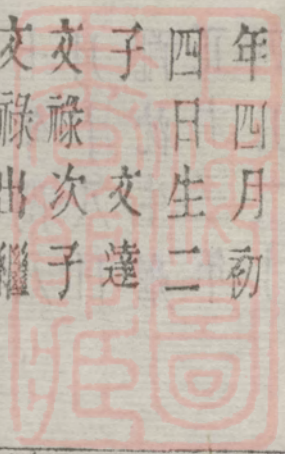 年四月初
四日生二
子 文達
文祿次子
文祿出繼